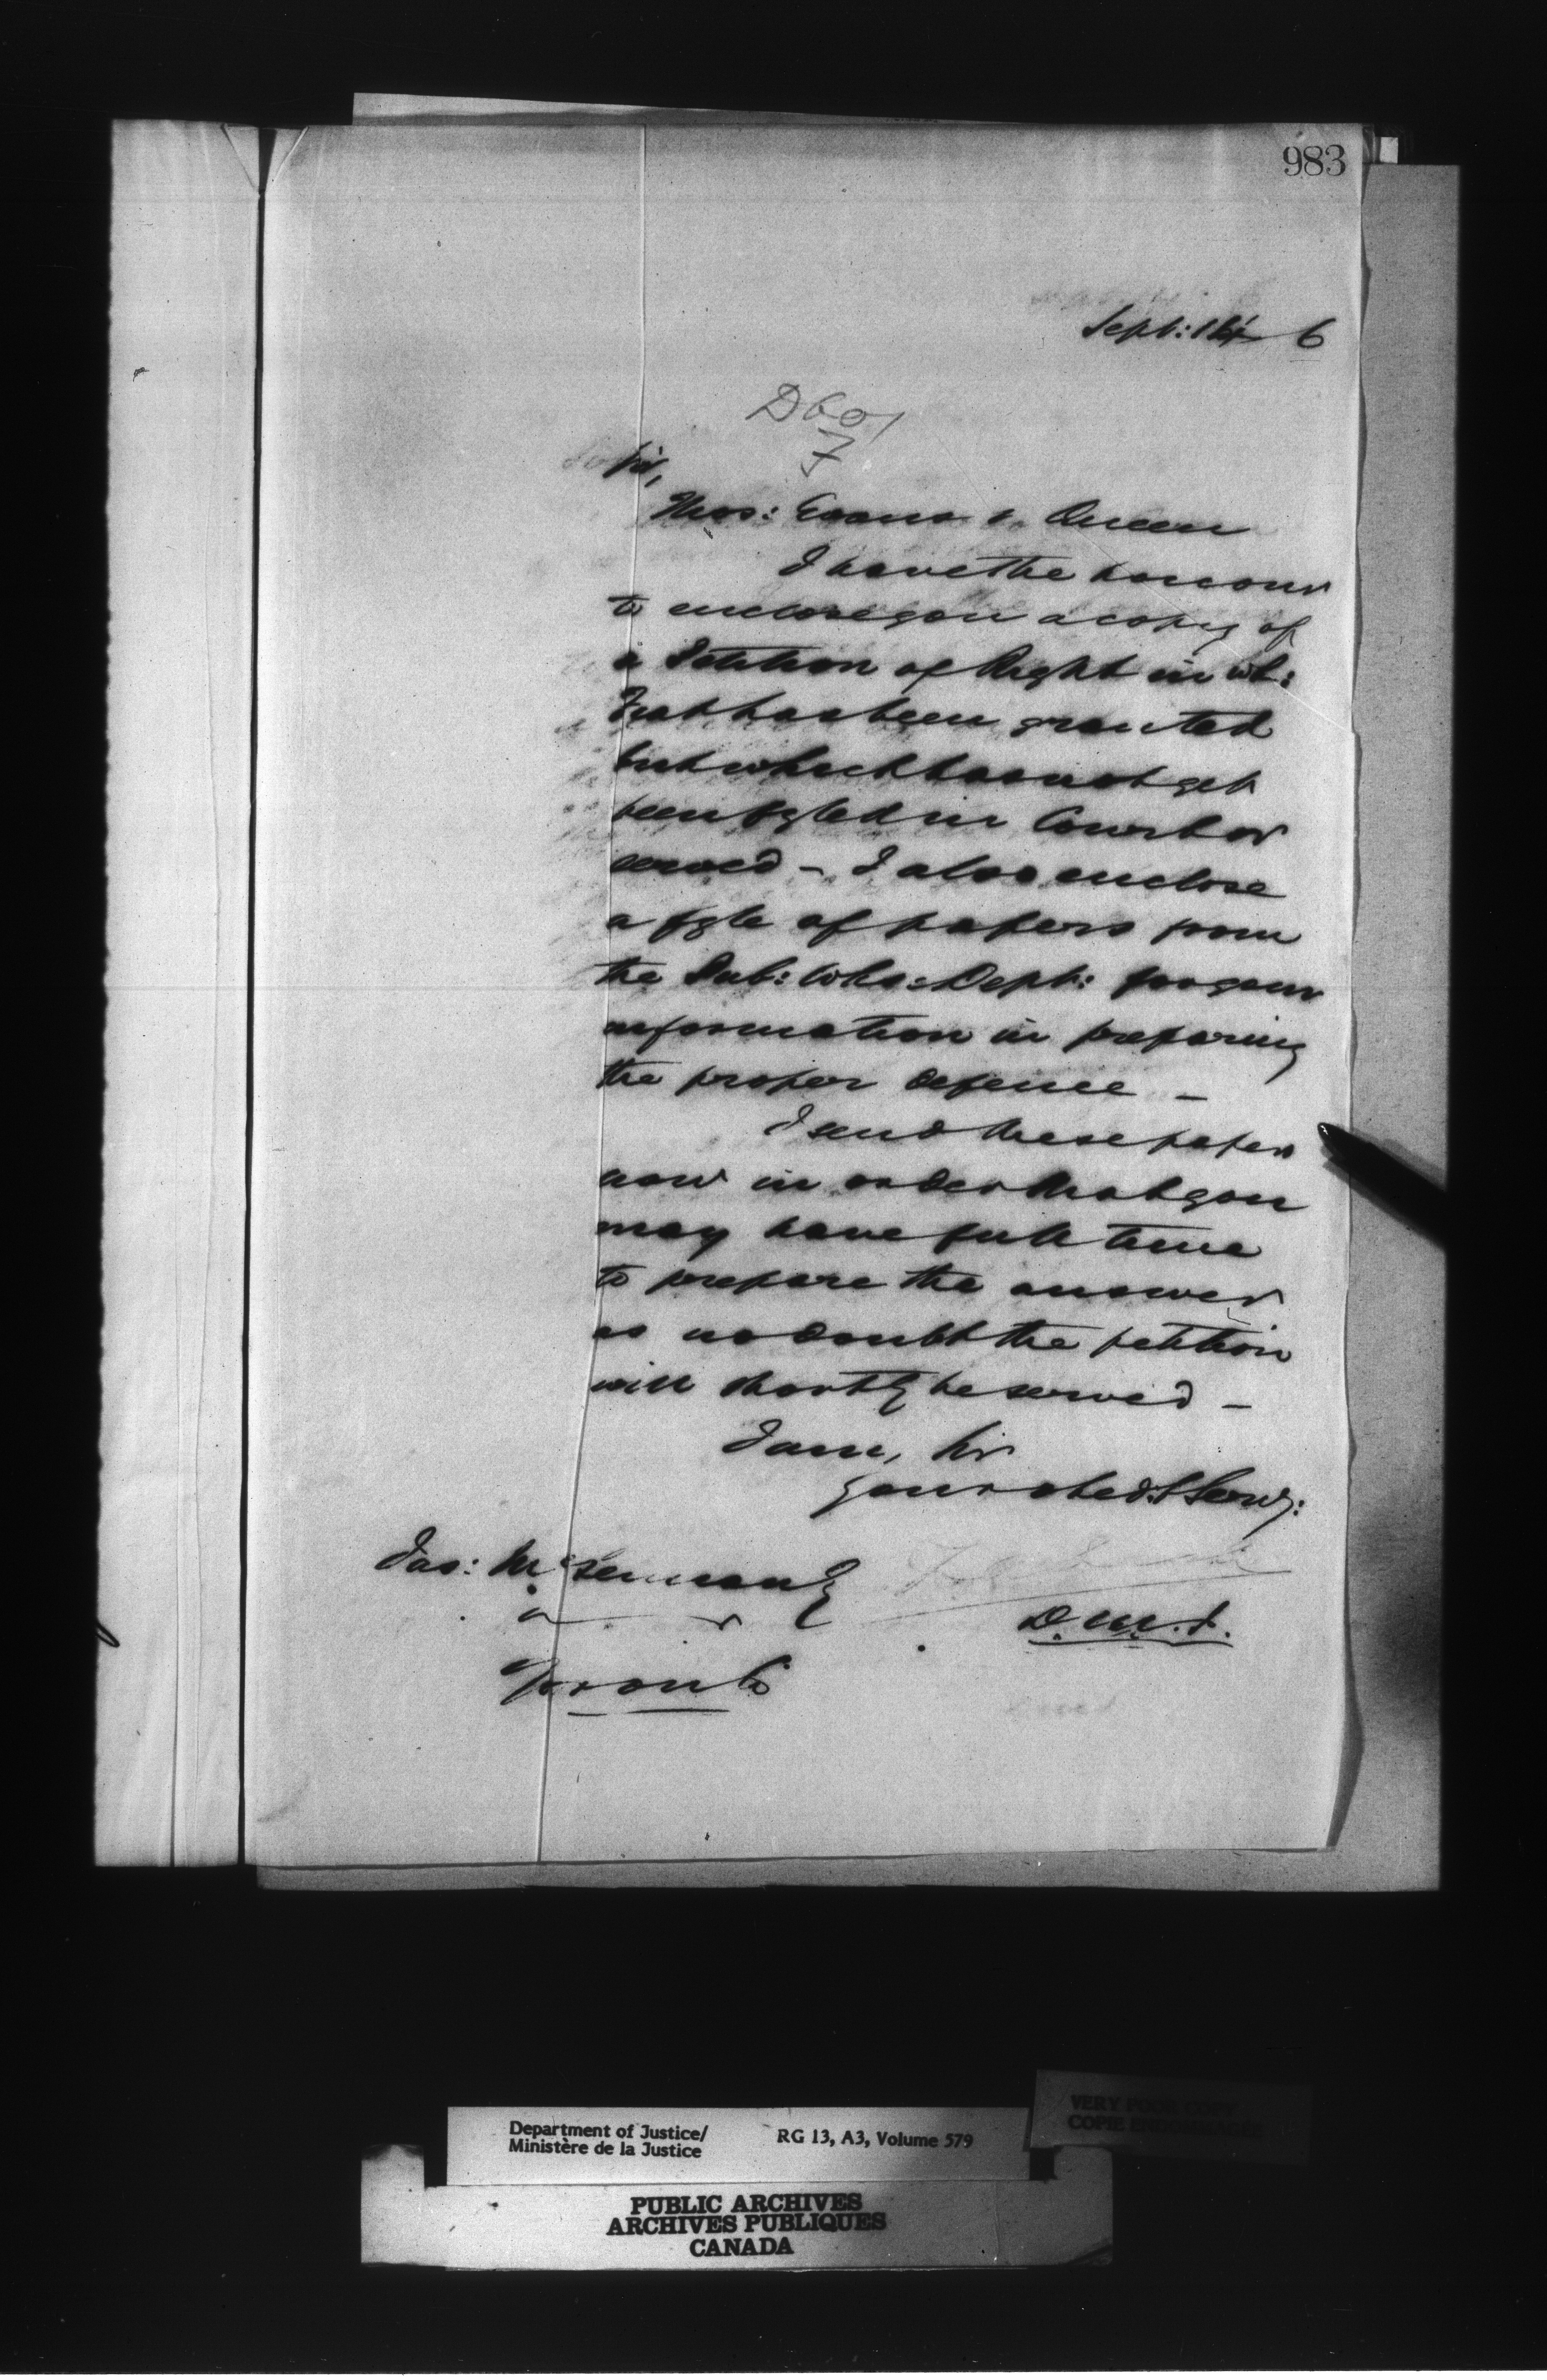 983
Sept: 14 6
D601
7
Sir,
Thos: Evans v. Queen
I have the honour
to enclose you a copy of
a Petition of Right in wh:
Fiat has been granted
but which has not yet
been fyled in Court or
served – I also enclose
a fyle of papers from
the Pub: Wks: Dept: for your
information in preparing
the proper defence –
I send these papers
now in order that you
may have full time
to prepare the answer
as no doubt the petition
will shortly be served –
I am, Sir
your obed: Serv:
Jas: McLennan
D. M. J.
Toronto
Department of Justice/
Ministère de la Justice
RG 13, A3, Volume 579
VERY POOR COPY
COPIE
PUBLIC ARCHIVES
ARCHIVES PUBLIQUES
CANADA